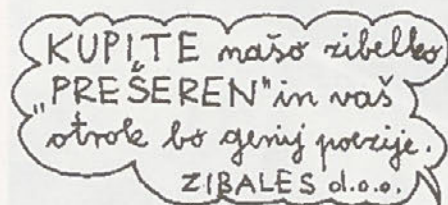 KUPITE našo zibelko
„PREŠEREN" in vaš
otrok bo genij poezije.
ZIBALES d.o.o.